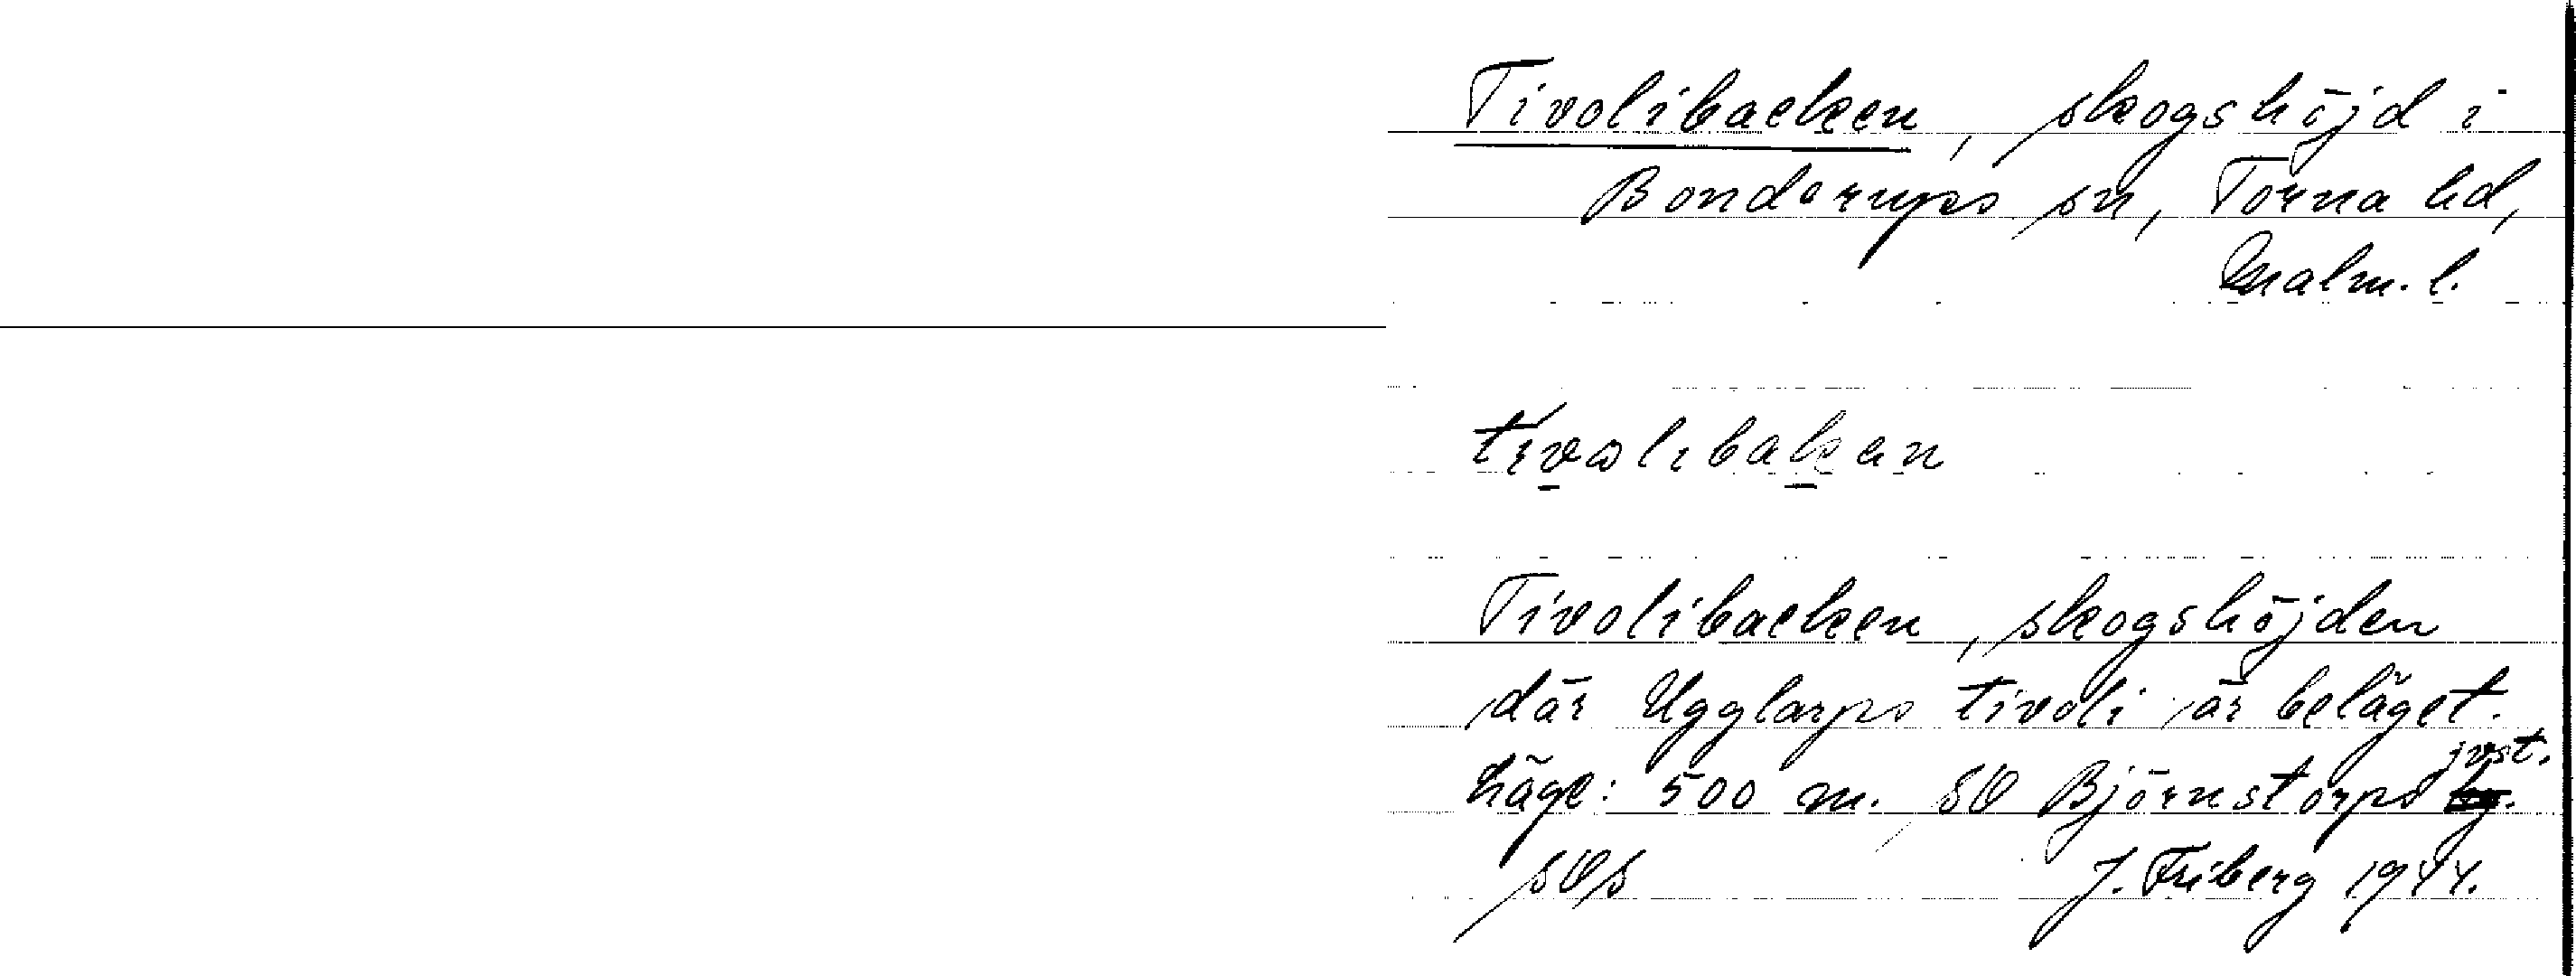 Tivolibacken, skogshöjd i
Bondarups sn, Torna hd,
Malm. l.
tivolibakan
Tivolibacken, skogshöjden
där Ugglarps tivoli är beläget.
Läge: 500 m. SO Björnstorps jvst.
J. Friberg 1944.